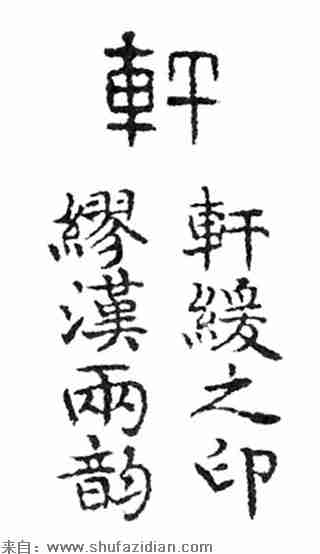 軒
軒緩之印
繆漢兩韵
来自：www.shufazidian.com